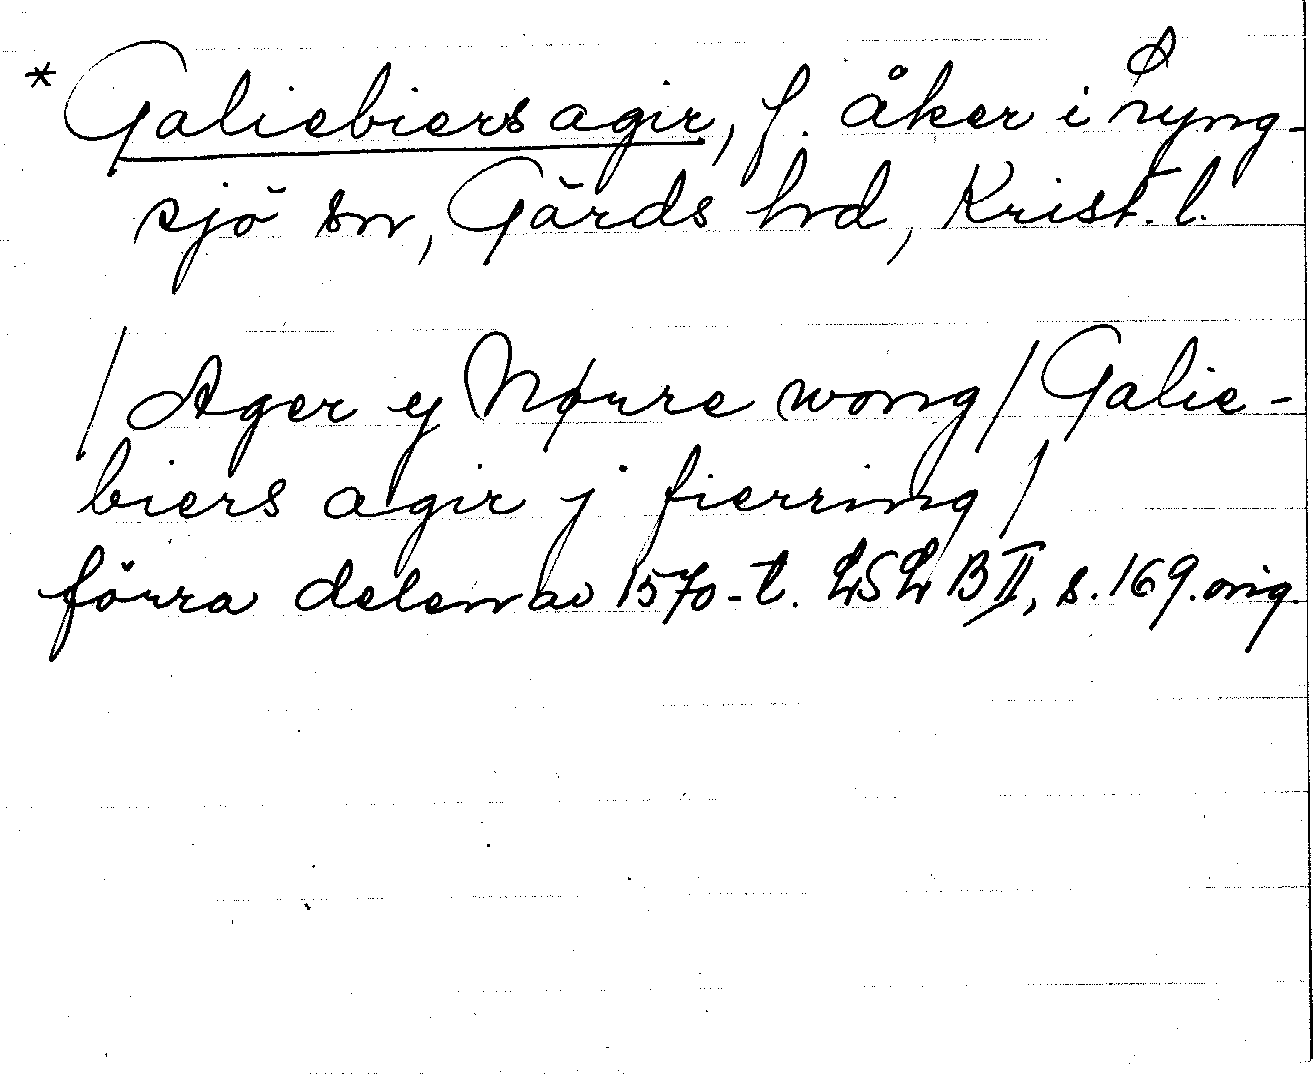 * Galiebiers agir, f. åker i Ryng-
sjö sn, Gärds hd, Krist. l.
/ Ager y Nørre wong / Galie-
biers agir j fierring /
förra delen av 1570-t. LSL B II, s. 169. orig.